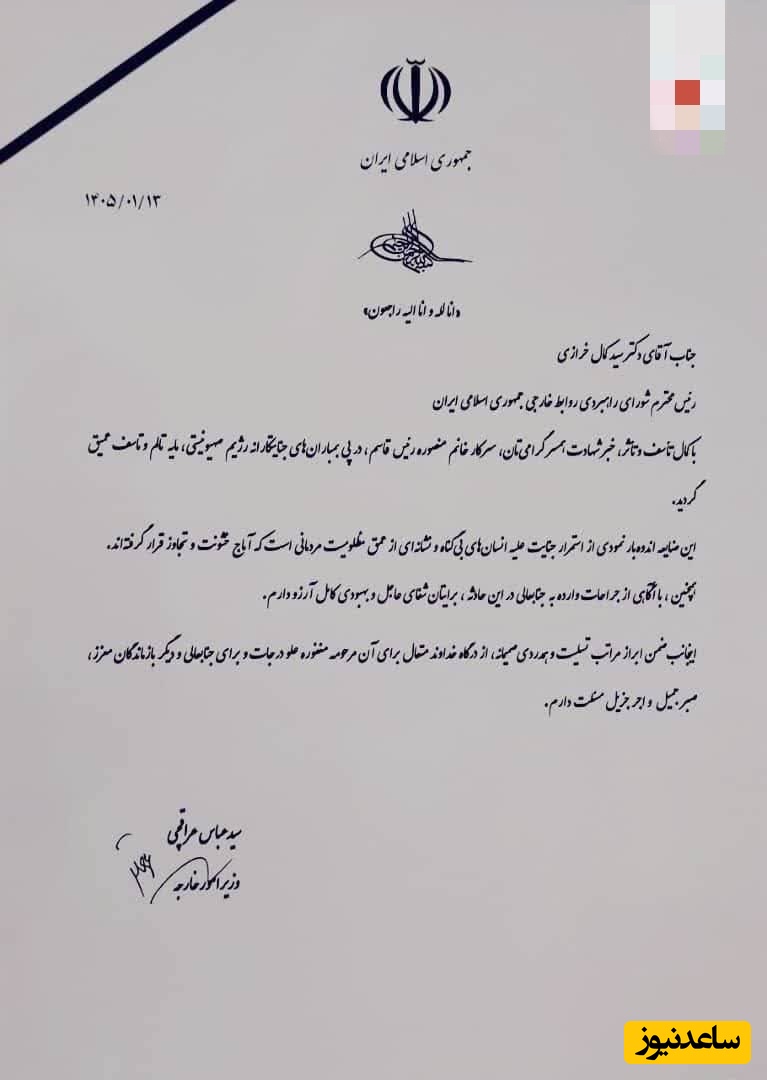 جمهوری اسلامی ایران
۱۴۰۵/۰۱/۱۳
«انا لله و انا الیه راجعون»
جناب آقای دکتر سید کمال خرازی
رئیس محترم شورای راهبردی روابط خارجی جمهوری اسلامی ایران
با کمال تأسف و تأثر، خبر شهادت همسر گرامی‌تان، سرکار خانم منصوره رئیس قاسم، در پی بمباران‌های جنایتکارانه رژیم صهیونیستی، مایه تالم و تاسف عمیق
گردید.
این ضایعه اندوه‌بار نمودی از استمرار جنایت علیه انسان‌های بی‌گناه و نشانه‌ای از عمق مظلومیت مردمانی است که آماج خشونت و تجاوز قرار گرفته‌اند.
همچنین، با آگاهی از جراحات وارده به جنابعالی در این حادثه، برایتان شفای عاجل و بهبودی کامل آرزو دارم.
اینجانب ضمن ابراز مراتب تسلیت و همدردی صمیمانه، از درگاه خداوند متعال برای آن مرحومه مغفوره علو درجات و برای جنابعالی و دیگر بازماندگان معزز،
صبر جمیل و اجر جزیل مسئلت دارم.
سید عباس عراقچی
وزیر امور خارجه
ساعدنیوز